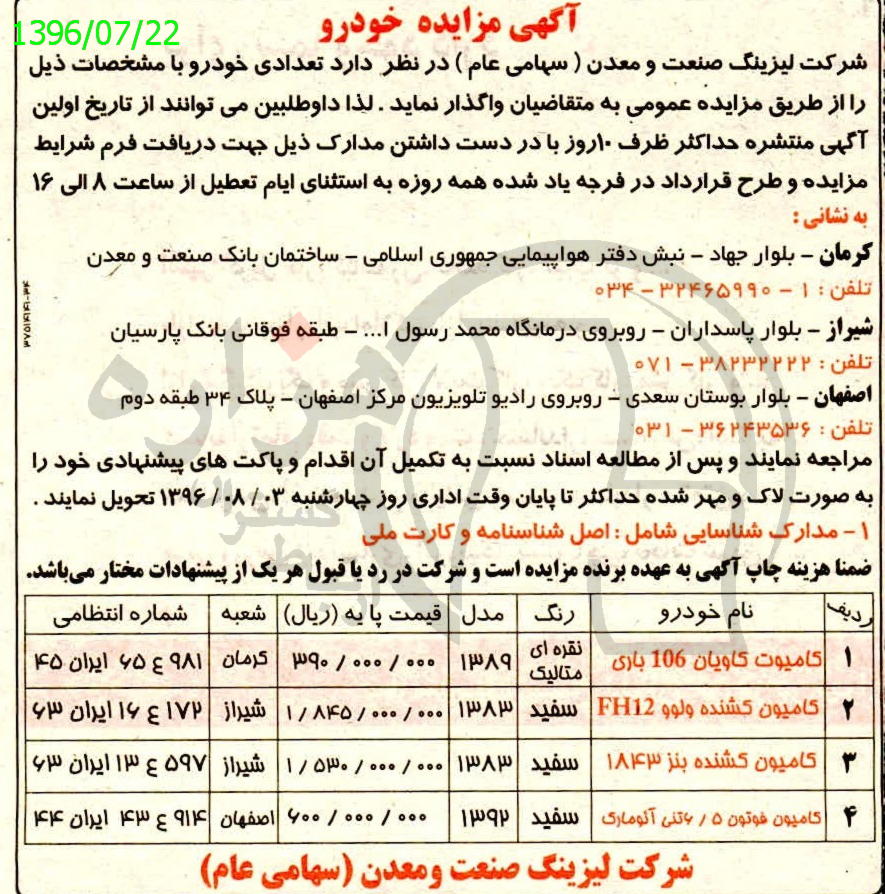 آگهی مزایده خودرو
1396/07/22
شرکت لیزینگ صنعت و معدن ( سهامی عام ) در نظر دارد تعدادی خودرو با مشخصات ذیل
را از طریق مزایده عمومی به متقاضیان واگذار نماید . لذا داوطلبین می توانند از تاریخ اولین
آگهی منتشره حداکثر ظرف ۱۰روز با در دست داشتن مدارک ذیل جهت دریافت فرم شرایط
مزایده و طرح قرارداد در فرجه یاد شده همه روزه به استثنای ایام تعطیل از ساعت ۸ الی ۱۶
به نشانی :
کرمان - بلوار جهاد - نبش دفتر هواپیمایی جمهوری اسلامی - ساختمان بانک صنعت و معدن
تلفن : ۱ - ۳۲۴۶۵۹۹۰ - ۰۳۴
شیراز - بلوار پاسداران - روبروی درمانگاه محمد رسول ا... - طبقه فوقانی بانک پارسیان
تلفن : ۳۸۲۳۲۲۲۲ - ۰۷۱
اصفهان - بلوار بوستان سعدی - روبروی رادیو تلویزیون مرکز اصفهان - پلاک ۳۴ طبقه دوم
تلفن : ۳۶۲۴۳۵۳۶ - ۰۳۱
مراجعه نمایند و پس از مطالعه اسناد نسبت به تکمیل آن اقدام و پاکت های پیشنهادی خود را
به صورت لاک و مهر شده حداکثر تا پایان وقت اداری روز چهارشنبه ۰۳ / ۰۸ / ۱۳۹۶ تحویل نمایند .
۱ - مدارک شناسایی شامل : اصل شناسنامه و کارت ملی
ضمنا هزینه چاپ آگهی به عهده برنده مزایده است و شرکت در رد یا قبول هر یک از پیشنهادات مختار می‌باشد.
ردیف نام خودرو رنگ مدل قیمت پایه (ریال) شعبه شماره انتظامی
۱ کامیوت کاویان 106 باری نقره ای متالیک ۱۳۸۹ ۳۹۰ / ۰۰۰ / ۰۰۰ کرمان ۹۸۱ ع ۶۵ ایران ۴۵
۲ کامیون کشنده ولوو FH12 سفید ۱۳۸۳ ۱ / ۸۴۵ / ۰۰۰ / ۰۰۰ شیراز ۱۷۲ ع ۱۶ ایران ۶۳
۳ کامیون کشنده بنز ۱۸۴۳ سفید ۱۳۸۳ ۱ / ۵۳۰ / ۰۰۰ / ۰۰۰ شیراز ۵۹۷ ع ۱۳ ایران ۶۳
۴ کامیون فوتون ۵ / ۶تنی آئومارک سفید ۱۳۹۲ ۶۰۰ / ۰۰۰ / ۰۰۰ اصفهان ۹۱۴ ع ۴۳ ایران ۴۴
شرکت لیزینگ صنعت ومعدن (سهامی عام)
هزاره